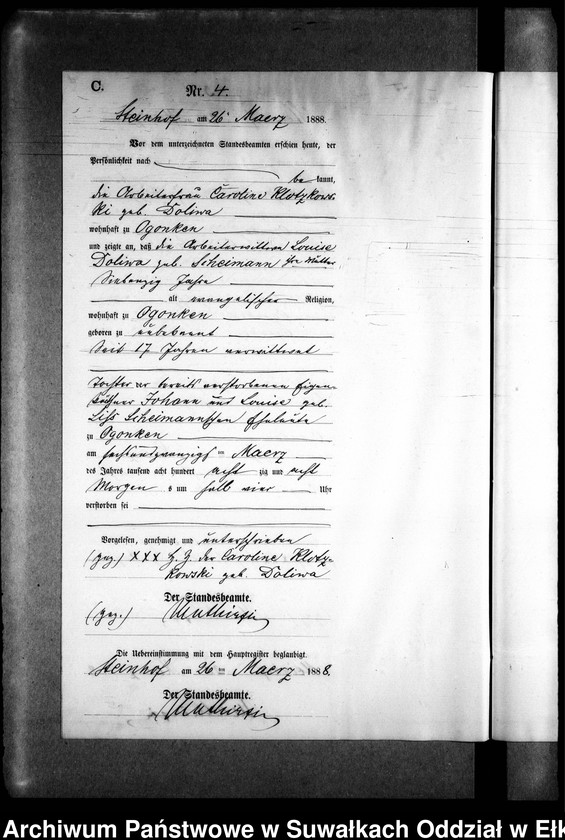 C.
Nr. 4.
Steinhof am 26 Maerz 1888.
Vor dem unterzeichneten Standesbeamten erschien heute, der
Persönlichkeit nach
be kannt,
die Arbeiterfrau Caroline Klotzkows-
ki geb. Doliwa
wohnhaft zu Ogonken
und zeigte an, daß die Arbeiterwittwe Louise
Doliwa geb. Scheimann ihre Mutter
Siebenzig Jahre
alt evangelischer Religion,
wohnhaft zu Ogonken
geboren zu unbekannt
Seit 17 Jahren verwittwet
Tochter der bereits verstorbenen Eigen-
käthner Johann und Louise geb.
Liss Scheimannschen Eheleute
zu Ogonken
am sechsundzwanzigsten Maerz
des Jahres tausend acht hundert acht zig und acht
Morgen s um halb vier Uhr
verstorben sei
Vorgelesen, genehmigt und unterschrieben
(gez.) XXX H. Z. der Caroline Klotz-
kowski geb. Doliwa
Der Standesbeamte.
(gez.)
Die Uebereinstimmung mit dem Hauptregister beglaubigt.
Steinhof am 26 ten Maerz 1888.
Der Standesbeamte.
Archiwum Państwowe w Suwałkach Oddział w Ełk